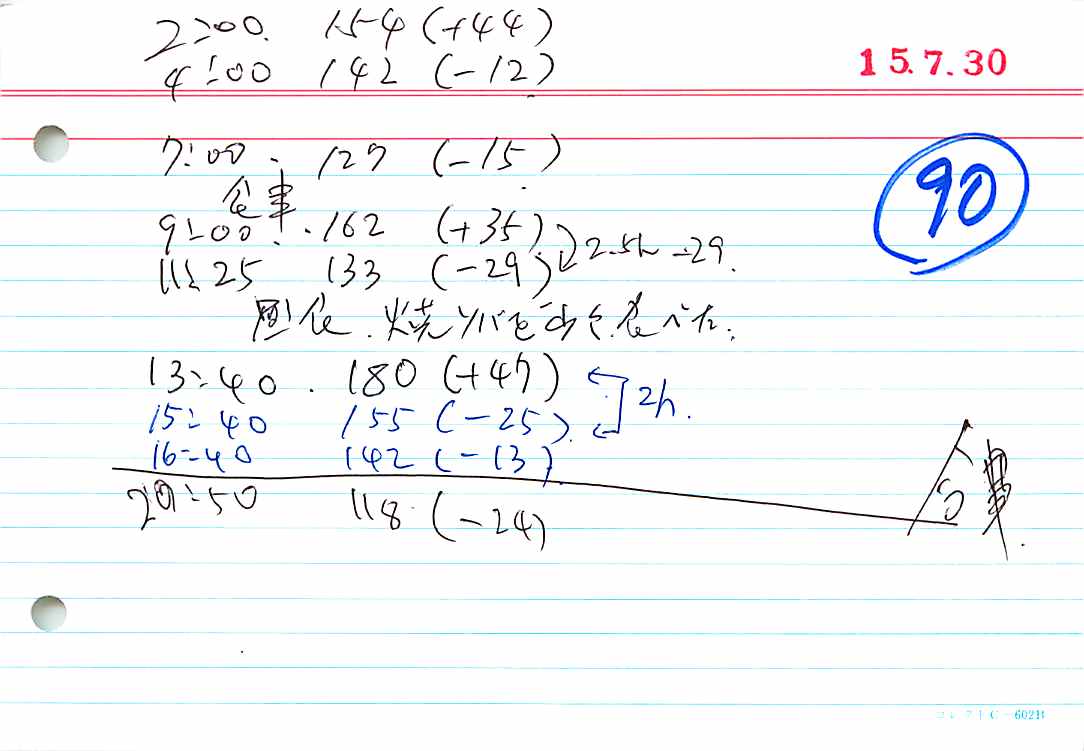 2:00. 154 (+44)
4:00 142 (-12)
15.7.30
7:00. 127 (-15)
90
食事
9:00 162 (+35)
2.5h -29.
11:25 133 (-29)
昼食.焼ソバを 食べた.
13:40. 180 (+47)
2h.
15:40 155 (-25).
16:40 142 (-13).
食事.
20:50 118 (-24)
コレクト C-602B